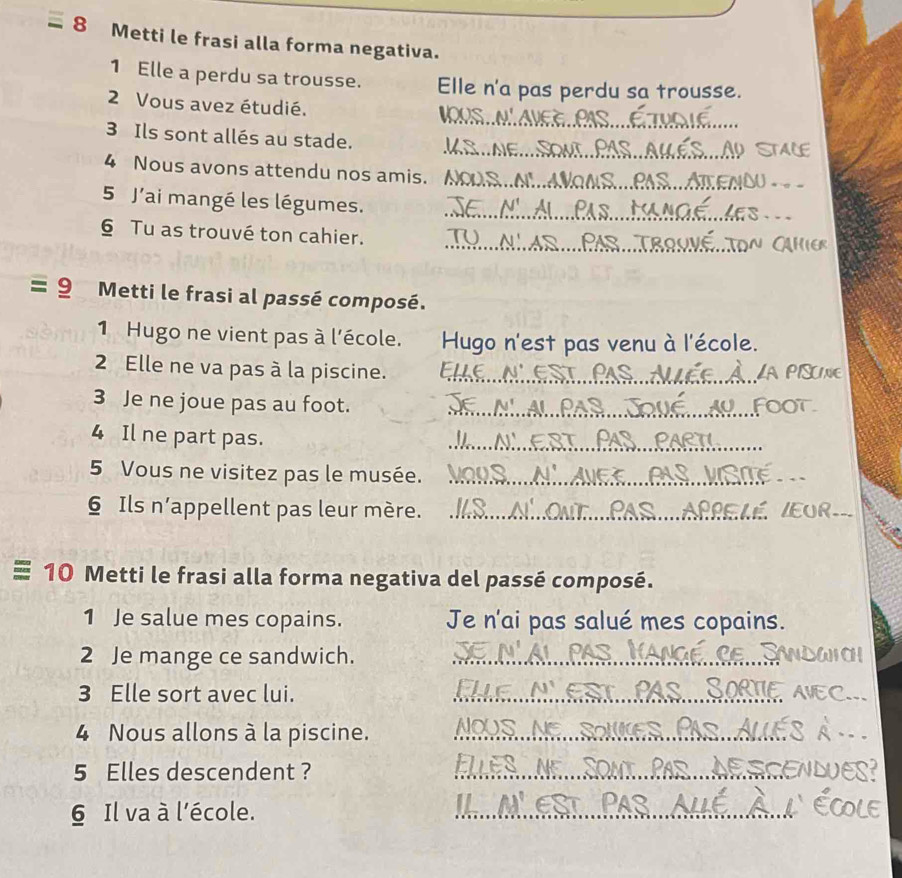 8 Metti le frasi alla forma negativa.
1 Elle a perdu sa trousse. Elle n'a pas perdu sa trousse.
2 Vous avez étudié. VOUS N' AVEZ PAS ÉTUDIÉ
3 Ils sont allés au stade. ILS NE SONT PAS ALLÉS AU STADE
4 Nous avons attendu nos amis. NOUS N' AVONS PAS ATTENDU ...
5 J'ai mangé les légumes. JE N' AI PAS MANGÉ LES ...
6 Tu as trouvé ton cahier. TU N' AS PAS TROUVÉ TON CAHIER
9 Metti le frasi al passé composé.
1 Hugo ne vient pas à l'école. Hugo n'est pas venu à l'école.
2 Elle ne va pas à la piscine. ELLE N' EST PAS ALLÉE À LA PISCINE
3 Je ne joue pas au foot. JE N' AI PAS JOUÉ AU FOOT.
4 Il ne part pas. IL N' EST PAS PARTI
5 Vous ne visitez pas le musée. VOUS N' AVEZ PAS VISITÉ ...
6 Ils n'appellent pas leur mère. ILS N' ONT PAS APPELÉ LEUR...
10 Metti le frasi alla forma negativa del passé composé.
1 Je salue mes copains. Je n'ai pas salué mes copains.
2 Je mange ce sandwich. JE N' AI PAS MANGÉ CE SANDWICH
3 Elle sort avec lui. ELLE N' EST PAS SORTIE AVEC...
4 Nous allons à la piscine. NOUS NE SOMMES PAS ALLÉS À ...
5 Elles descendent ? ELLES NE SONT PAS DESCENDUES?
6 Il va à l'école. IL N' EST PAS ALLÉ À L' ÉCOLE